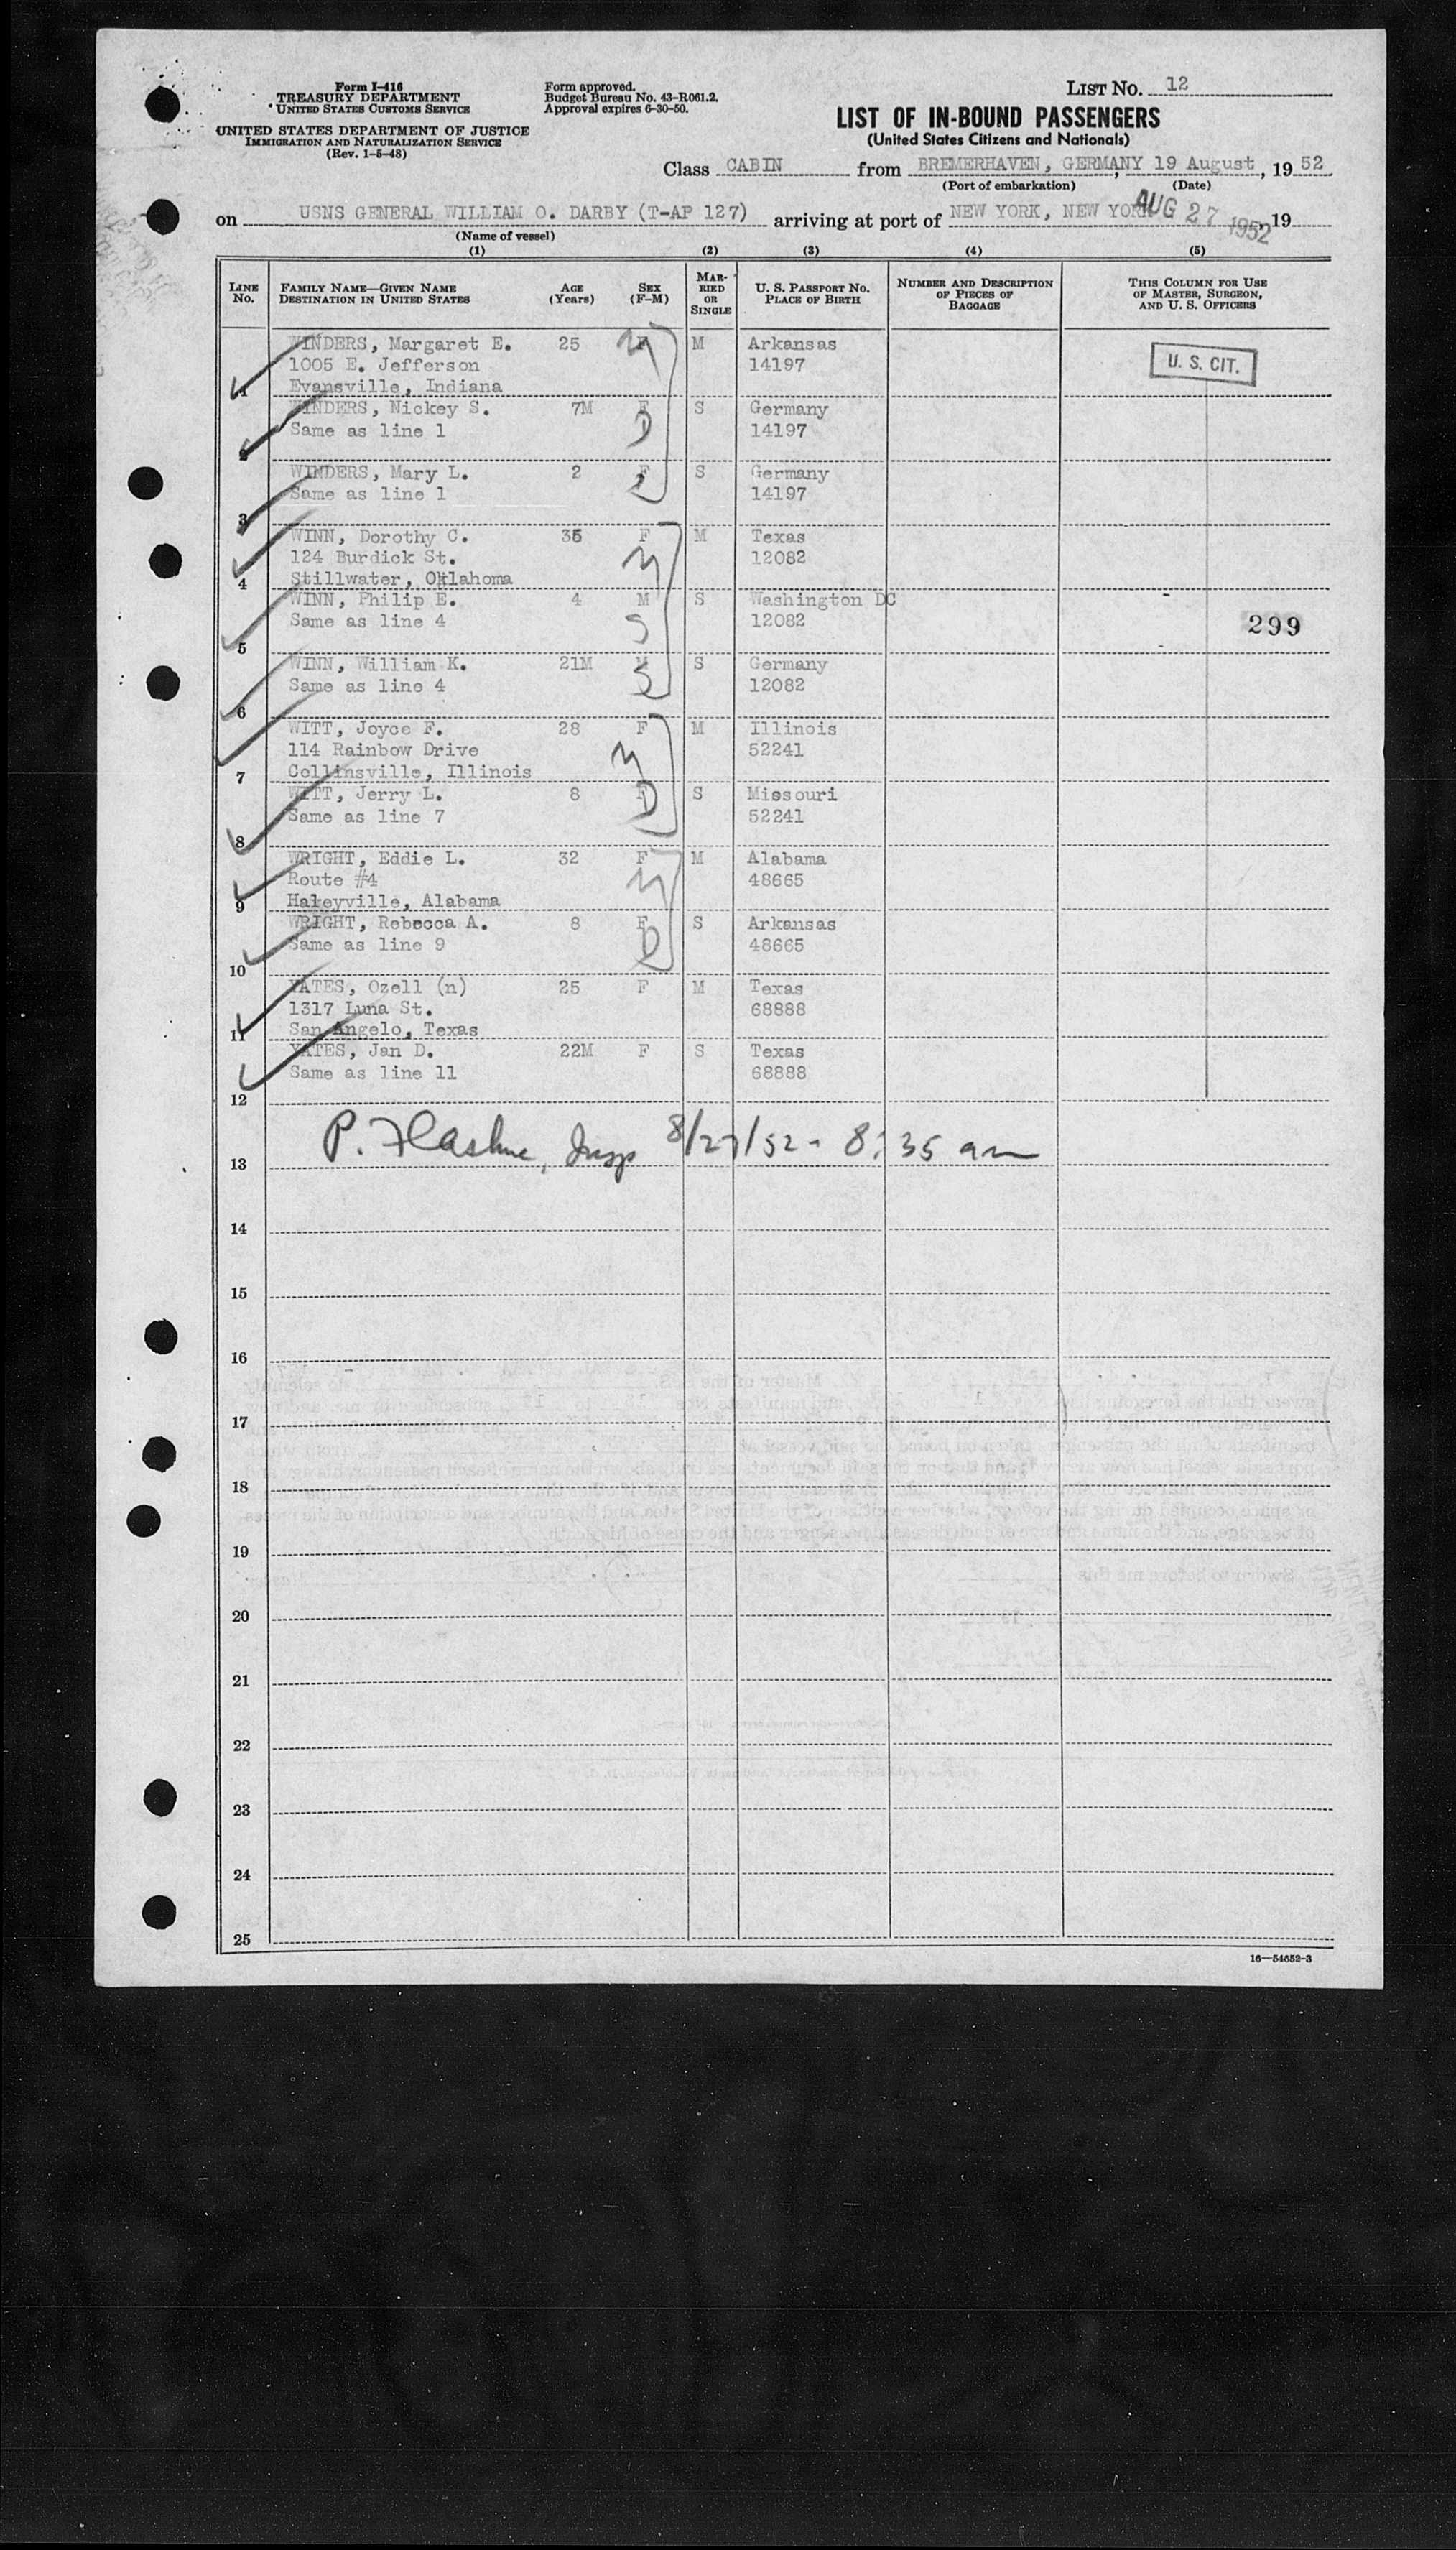 Form I-416
TREASURY DEPARTMENT
UNITED STATES CUSTOMS SERVICE
UNITED STATES DEPARTMENT OF JUSTICE
IMMIGRATION AND NATURALIZATION SERVICE
(Rev. 1-5-48)
Form approved.
Budget Bureau No. 43-R061.2.
Approval expires 6-30-50.
LIST No. 12
LIST OF IN-BOUND PASSENGERS
(United States Citizens and Nationals)
Class CABIN from BREMERHAVEN, GERMANY, 19 August, 19 52
(Port of embarkation) (Date)
on USNS GENERAL WILLIAM O. DARBY (T-AP 127) arriving at port of NEW YORK, NEW YORK AUG 27 1952, 19
(Name of vessel)
(1) (2) (3) (4) (5)
LINE No. FAMILY NAME—GIVEN NAME DESTINATION IN UNITED STATES AGE (Years) SEX (F-M) MARRIED OR SINGLE U. S. PASSPORT No. PLACE OF BIRTH NUMBER AND DESCRIPTION OF PIECES OF BAGGAGE THIS COLUMN FOR USE OF MASTER, SURGEON, AND U. S. OFFICERS
WINDERS, Margaret E. 25 F M M Arkansas
1005 E. Jefferson 14197 U. S. CIT.
1 Evansville, Indiana
WINDERS, Nickey S. 7M F S Germany
Same as line 1 D 14197
2
WINDERS, Mary L. 2 F S Germany
Same as line 1 D 14197
3
WINN, Dorothy C. 35 F M Texas
124 Burdick St. M 12082
4 Stillwater, Oklahoma
WINN, Philip E. 4 M S Washington DC
Same as line 4 S 12082 299
5
WINN, William K. 21M M S Germany
Same as line 4 S 12082
6
WITT, Joyce F. 28 F M Illinois
114 Rainbow Drive M 52241
7 Collinsville, Illinois
WITT, Jerry L. 8 F D S Missouri
Same as line 7 52241
8
WRIGHT, Eddie L. 32 F M Alabama
Route #4 M 48665
9 Haleyville, Alabama
WRIGHT, Rebecca A. 8 F S Arkansas
Same as line 9 D 48665
10
YATES, Ozell (n) 25 F M Texas
1317 Luna St. 68888
11 San Angelo, Texas
YATES, Jan D. 22M F S Texas
Same as line 11 68888
12
P. , Insp 8/27/52 - 8:35 am
13
14
15
16
17
18
19
20
21
22
23
24
25
16—54652-3